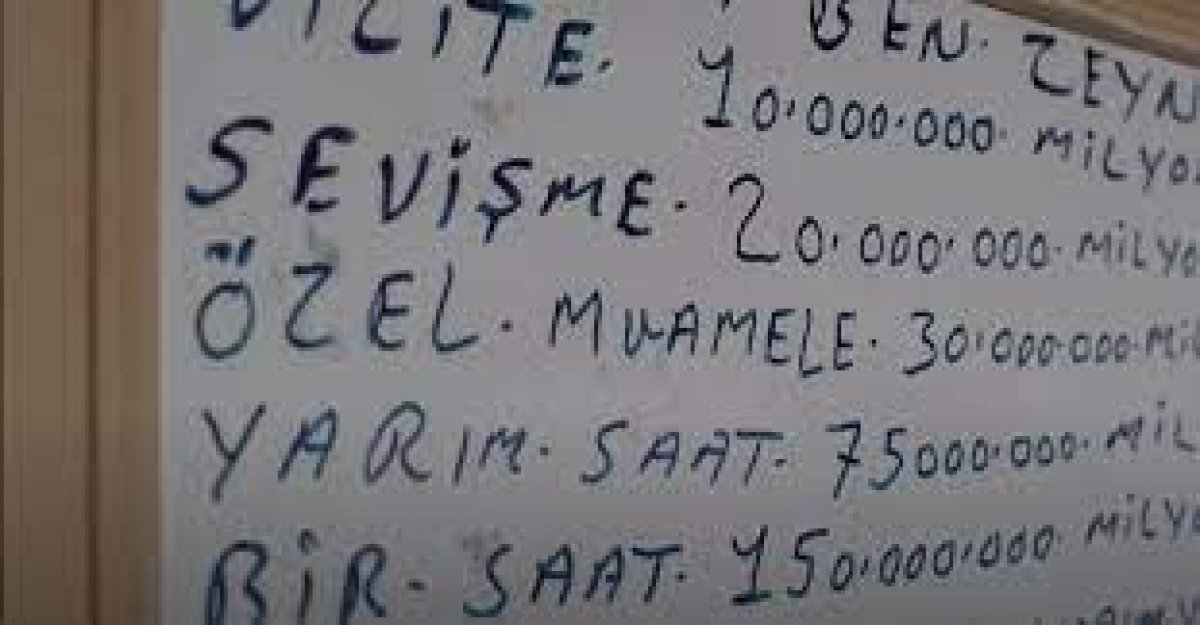 BEN. ZEYN
VİZİTE. 10.000.000. MİLYO
SEVİŞME. 20.000.000. MİLYO
ÖZEL. MUAMELE. 30.000.000. MİL
YARIM. SAAT. 75000.000. MİL
BİR. SAAT. 150.000.000 MİLYO